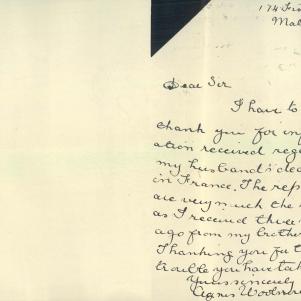 174
Mal
Dear Sir
I have to
thank you for inf
ation received reg
my husband's dea
in France. The rep
are very much the
as I received three
ago from my brother
Thanking you for th
trouble you have tak
Yours sincerely
Agnes